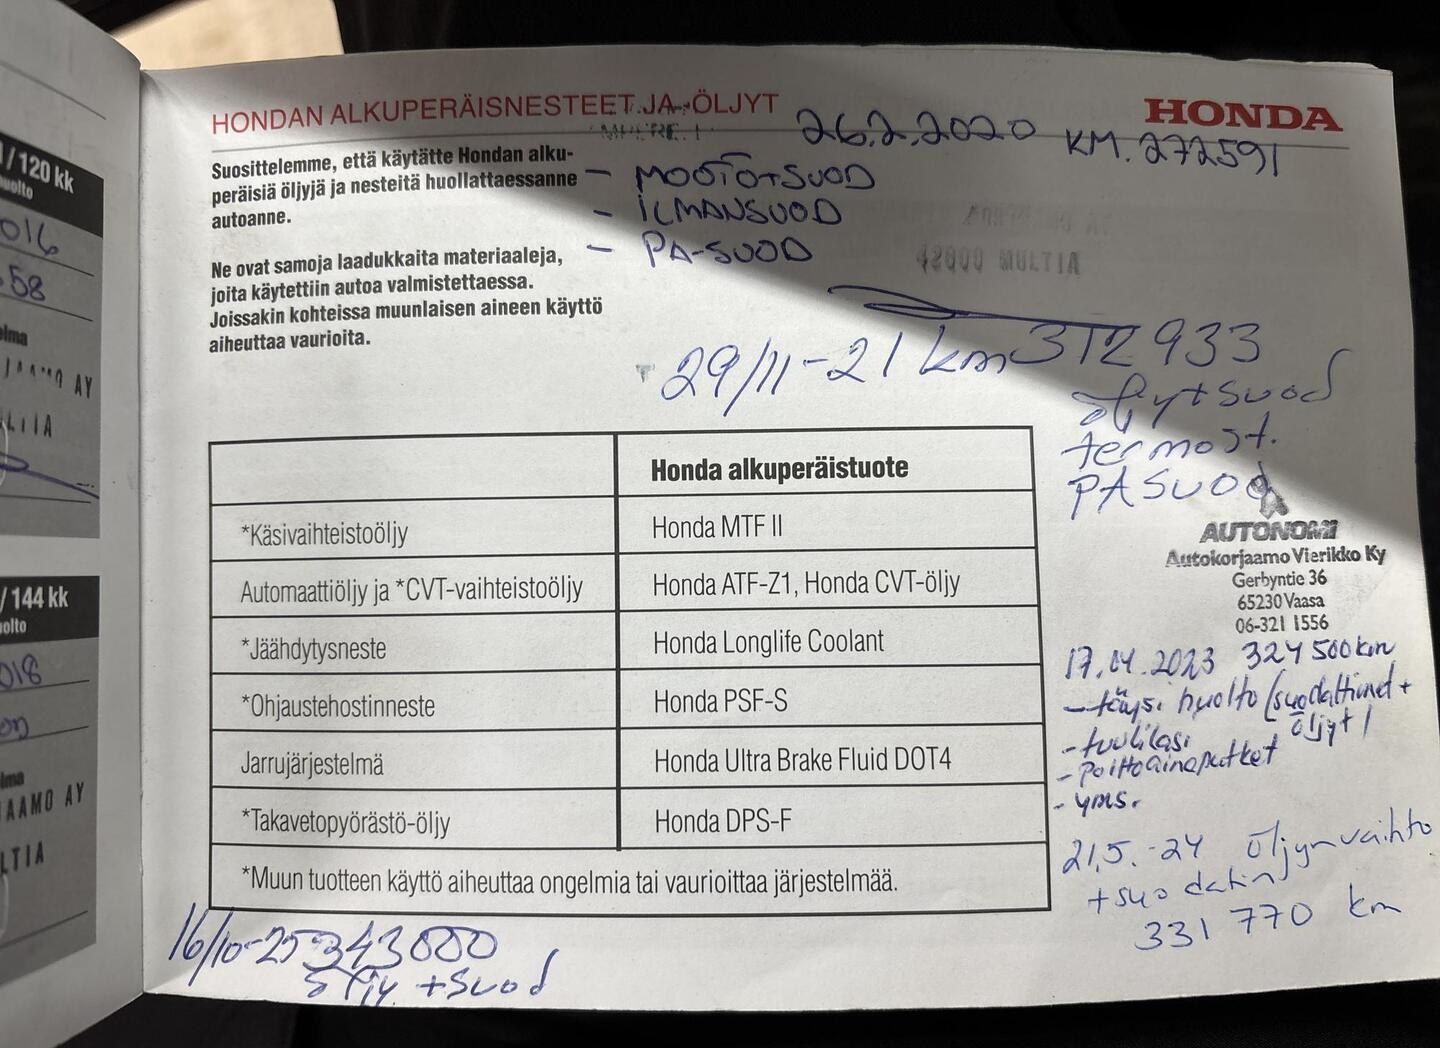 HONDAN ALKUPERÄISNESTEET JA -ÖLJYT
HONDA
26.2.2020 KM. 272591
Suosittelemme, että käytätte Hondan alku-
peräisiä öljyjä ja nesteitä huollattaessanne
autoanne.
- MOOTÖ+SUOD
- ILMANSUOD
- PA-SUOD
42800 MULTIA
Ne ovat samoja laadukkaita materiaaleja,
joita käytettiin autoa valmistettaessa.
Joissakin kohteissa muunlaisen aineen käyttö
aiheuttaa vaurioita.
29/11-21 km 312 933
öljyt+suod
termost.
PA SUOD
AUTONOMI
Autokorjaamo Vierikko Ky
Gerbyntie 36
65230 Vaasa
06-321 1556
Honda alkuperäistuote
*Käsivaihteistoöljy Honda MTF II
Automaattiöljy ja *CVT-vaihteistoöljy Honda ATF-Z1, Honda CVT-öljy
*Jäähdytysneste Honda Longlife Coolant
*Ohjaustehostinneste Honda PSF-S
Jarrujärjestelmä Honda Ultra Brake Fluid DOT4
*Takavetopyörästö-öljy Honda DPS-F
*Muun tuotteen käyttö aiheuttaa ongelmia tai vaurioittaa järjestelmää.
17.04.2023 324 500 km
- täysi huolto (suodattimet +
öljyt)
- tuulilasi
- polttoaineputket
- yms.
21.5.-24 öljynvaihto
+suodatin
331 770 km
16/10-25 343000
öljy +suod
/ 120 kk
uolto
016
58
lma
JAAMO AY
LTIA
/ 144 kk
uolto
018
lma
AAMO AY
LTIA